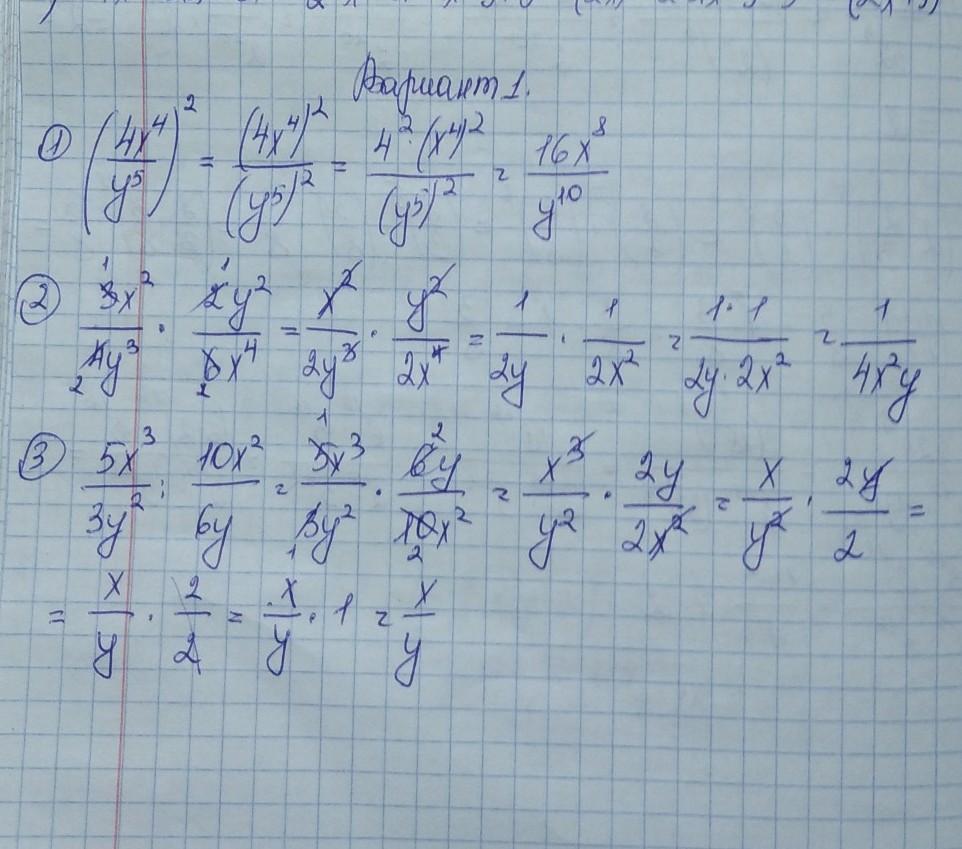 Вариант 1.
① (4x⁴/y⁵)² = (4x⁴)²/(y⁵)² = 4²·(x⁴)²/(y⁵)² = 16x⁸/y¹⁰
② 3x²/4y³ · 2y²/6x⁴ = x²/2y³ · y²/2x⁴ = 1/2y · 1/2x² = 1·1/2y·2x² = 1/4x²y
③ 5x³/3y² : 10x²/6y = 5x³/3y² · 6y/10x² = x³/y² · 2y/2x² = x/y² · 2y/2 =
= x/y · 2/2 = x/y · 1 = x/y